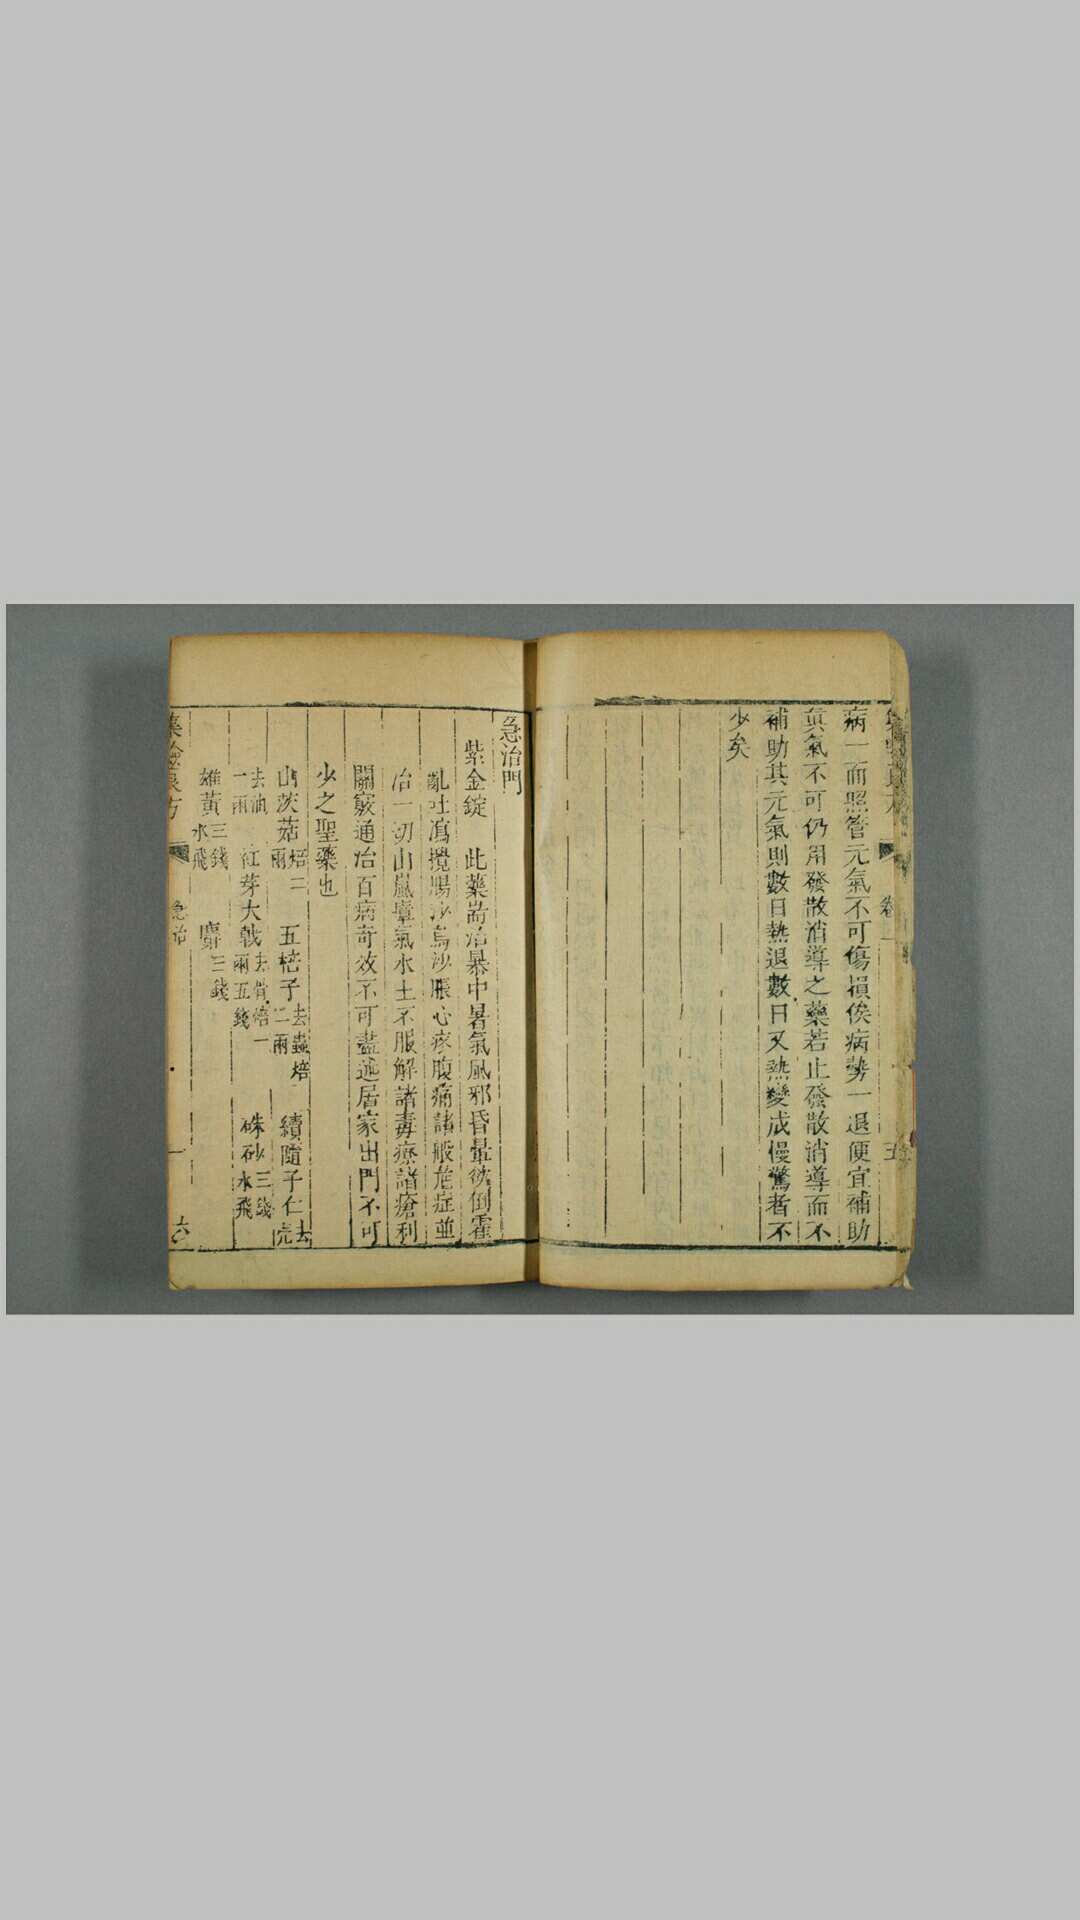 病一面照管元氣不可傷損俟病勢一退便宜補助
真氣不可仍用發散消導之藥若止發散消導而不
補助其元氣則數日熱退數日又熱變成慢驚者不
少矣
卷一
五
急治門
紫金錠 此藥耑治暴中暑氣風邪昏暈彼倒霍
亂吐瀉攪腸沙烏沙脹心疼腹痛諸般危症並
治一切山嵐瘴氣水土不服解諸毒療諸瘡利
關竅通治百病奇效不可盡述居家出門不可
少之聖藥也
山茨菇焙二兩 五棓子去蟲焙二兩 續隨子仁去壳
去油一兩 紅芽大戟去骨焙一兩五錢 硃砂三錢水飛
雄黃三錢水飛 麝三錢
集驗良方 急治 六